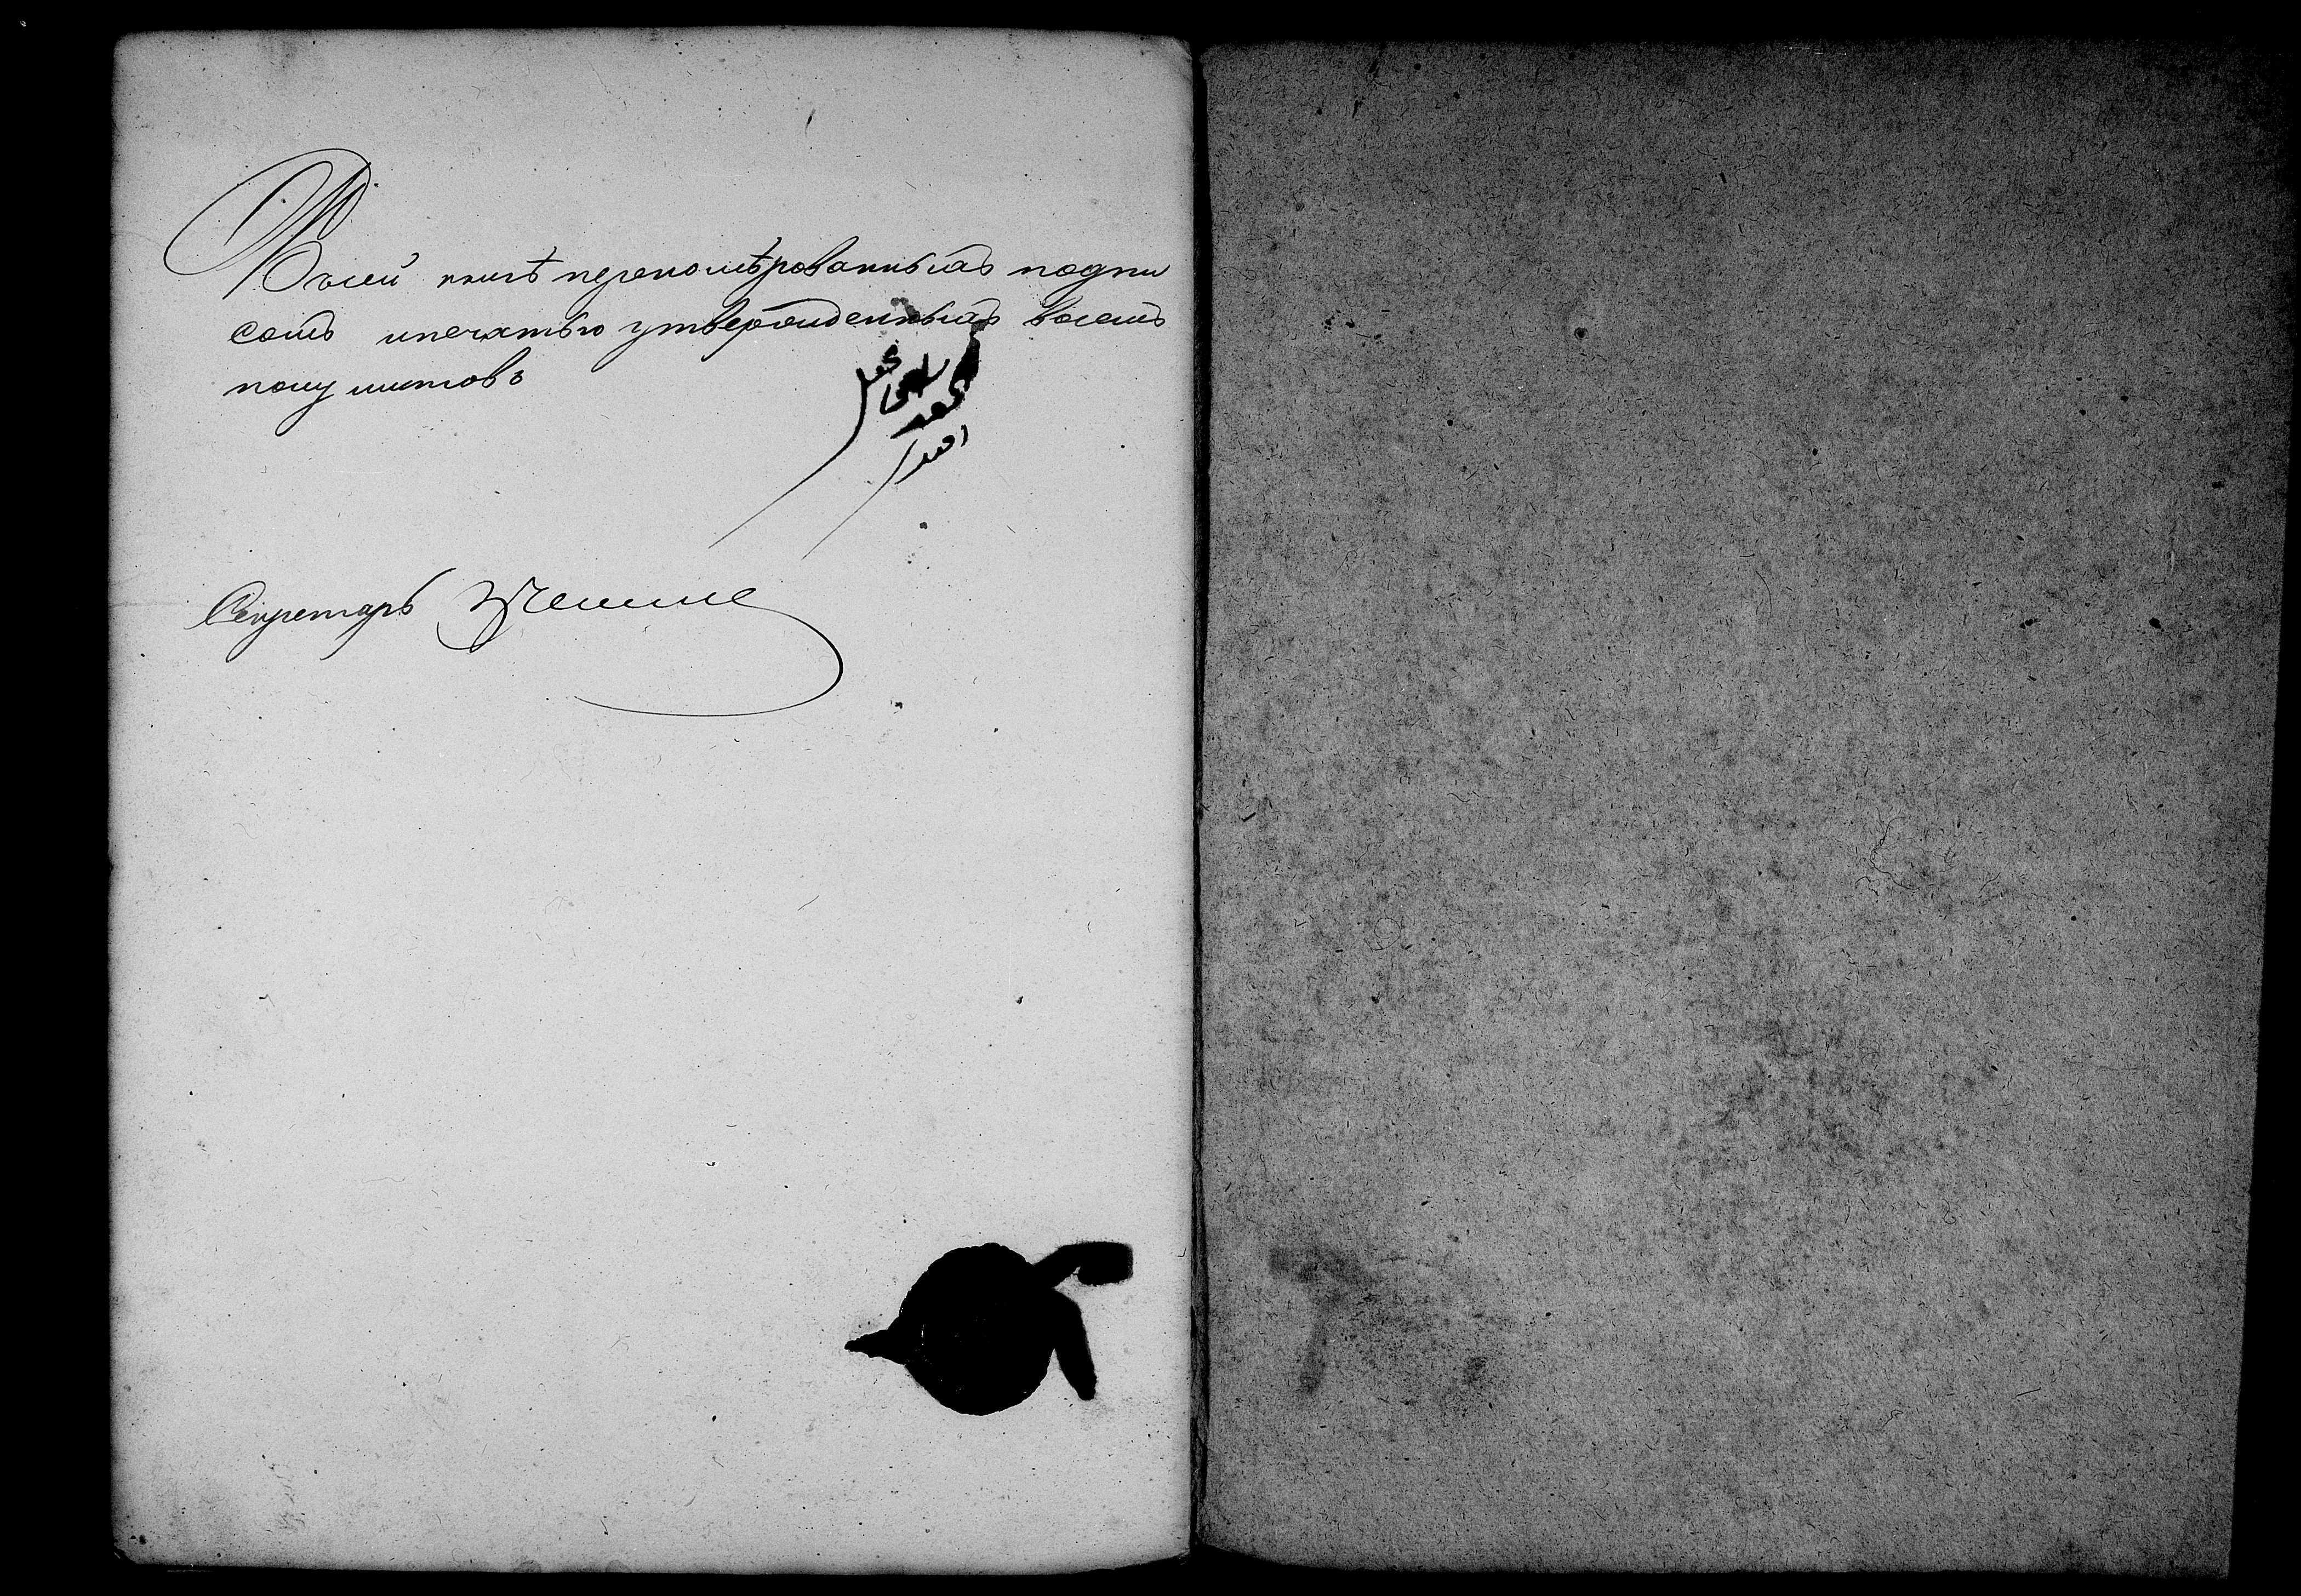 В сей книгѣ переномѣрованныхъ подпи
сомъ и печатью утвержденныхъ восемь
полулистовъ
Секретарь